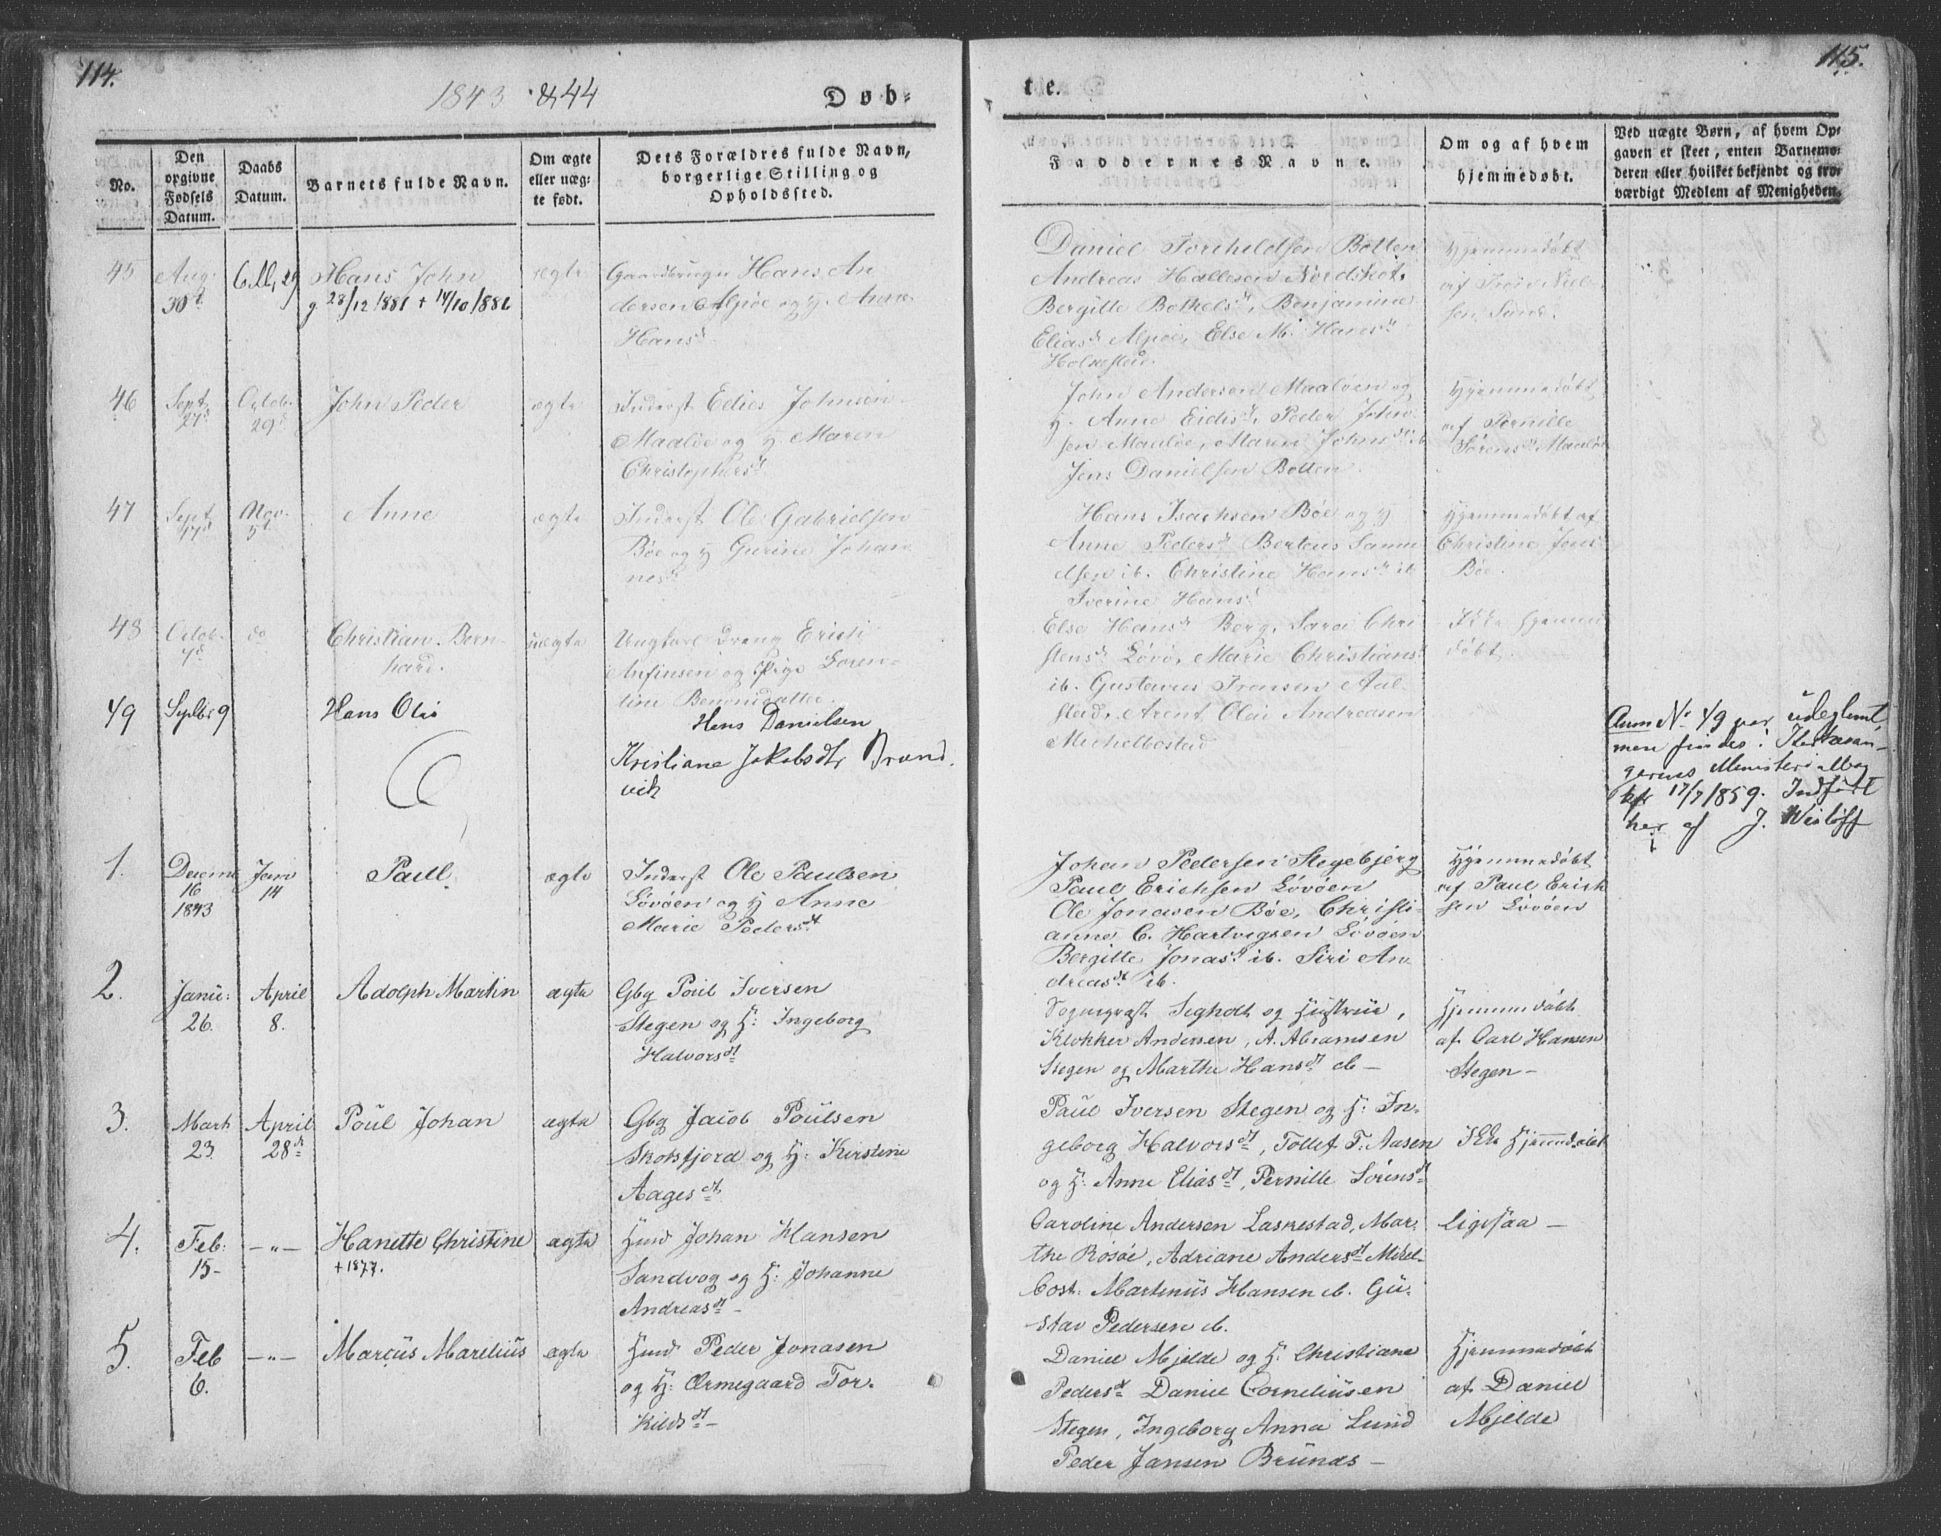 114.
115.
1843 & 44
Døb-
te.
No.
Den
opgivne
Fødsels
Datum.
Daabs
Datum.
Barnets fulde Navn.
Om ægte
eller uæg-
te født.
Dets Forældres fulde Navn,
borgerlige Stilling og
Opholdssted.
Faddernes Navne.
Om og af hvem
hjemmedøbt.
Ved uægte Børn, af hvem Op-
gaven er skeet, enten Barnemo-
deren eller hvilket bekjendt og tro-
værdigt Medlem af Menigheden.
45
Aug.
30t
Hans John
g 28/12 1881 + 14/10/1886
ægte
Gaardbruger Hans An
dersen Alpøe og H. Anne
Hansd.
Daniel Torchildsen Botten
Andreas Hallesen Nordskot,
Bergitte Bothelsd, Benjamine
Eliasd Alpøe, Else M. Hansd
Holkestad.
Hjemmedøbt
af Niel-
sen Sund.
46
Sept.
27d
Octob.
29d
John Peder
ægte
Inderst Edies Johnsen
Maaløe og H Maren
Christophersd
John Andersen Maaløen og
H. Anne Eidisd, Peder John-
sen Maaløe, Maren Johnsd ib
Jens Danielsen Botten.
Hjemmedøbt
af Pernille
Sørensd Maaløe
47
Sept.
17d
Nov.
5t
Anne
ægte
Inderst Ole Gabrielsen
Bøe og H Gurine Johan
nesd
Hans Isachsen Bøe og H
Anne Pedersd Berteus Samu
elsen ib. Christine Hansd ib
Iverine Hansd
Hjemmedøbt af
Christine Jons
Bøe.
48
Octob.
7d
do
Christian Bern-
hard.
uægte
Ungkarl Dreng Erich
Anfinsen og Pige Loren-
tine Benonisdatter.
Else Hansd Berg, Sara Chri
stensd Løvø, Marie Christiansd
ib. Gustavus Iversen Aal-
stad, Arent Olai Andreasen
Michelbostad
Ikke hjemme
døbt.
49
Septbr 9
Hans Olai
Hans Danielsen
Kristiane Jakobsdtr Brand
vik
Anm No 49 var udeglemt
men findes i
gerens Ministerialbog
17/7 1859. Indført
her af J. Wisløff
1.
Decemb
16
1843
Janv
14
Paul.
ægte
Inderst Ole Paulsen
Løvøen og H Anne
Marie Pedersdt
Johan Pedersen Stegebjerg
Paul Erichsen Løvøen
Ole Jonasen Bøe, Christi-
anne C. Hartvigsen Løvøen
Bergitte Jonasd ib. Siri An
dreasdt ib.
Hjemmedøbt
af Paul Erich
sen Løvøen
2.
Janu:
26.
April
8.
Adolph Martin
ægte
Gbg Poul Iversen
Stegen og H: Ingeborg
Halvorsdt
Sogneprest Segholt og Hustrue,
Klokker Andersen, A. Abramsen
Stegen og Marthe Hansdt ib —
Hjemmedøbt
af Carl Hansen
Stegen —
3.
Mart
23.
April
28d
Poul Johan
ægte
Gbg Jacob Poulsen
Skotsfjord og H: Kirstine
Aagesdt
Paul Iversen Stegen og H: In-
geborg Halvorsdt, Tollef T: Aasen
og H: Anne Eliasdt, Pernille Sørensdt
Ikke Hjemmedøbt
4.
Feb:
15 -
— " —
Hanette Christine
+ 1877.
ægte
Huusd Johan Hansen
Sandvog og H: Johanne
Andreasdt —
Caroline Andersen Laskestad, Mar-
the Røsøe, Adriane Andersdt Mikel-
bost. Martinus Hansen ib. Gu-
stav Pedersen ib.
Ligesaa —
5.
Feb
6.
— " —
Marcus Marelius
ægte
Huusd Peder Jonasen
og H: Ermegaard Tor-
kildsdt —
Daniel Mjelde og H: Christiane
Pedersdt Daniel Corneliusen
Stegen, Ingeborg Anna Lund
Peder Jansen Brunes —
Hjemmedøbt
af Daniel
Mjelde